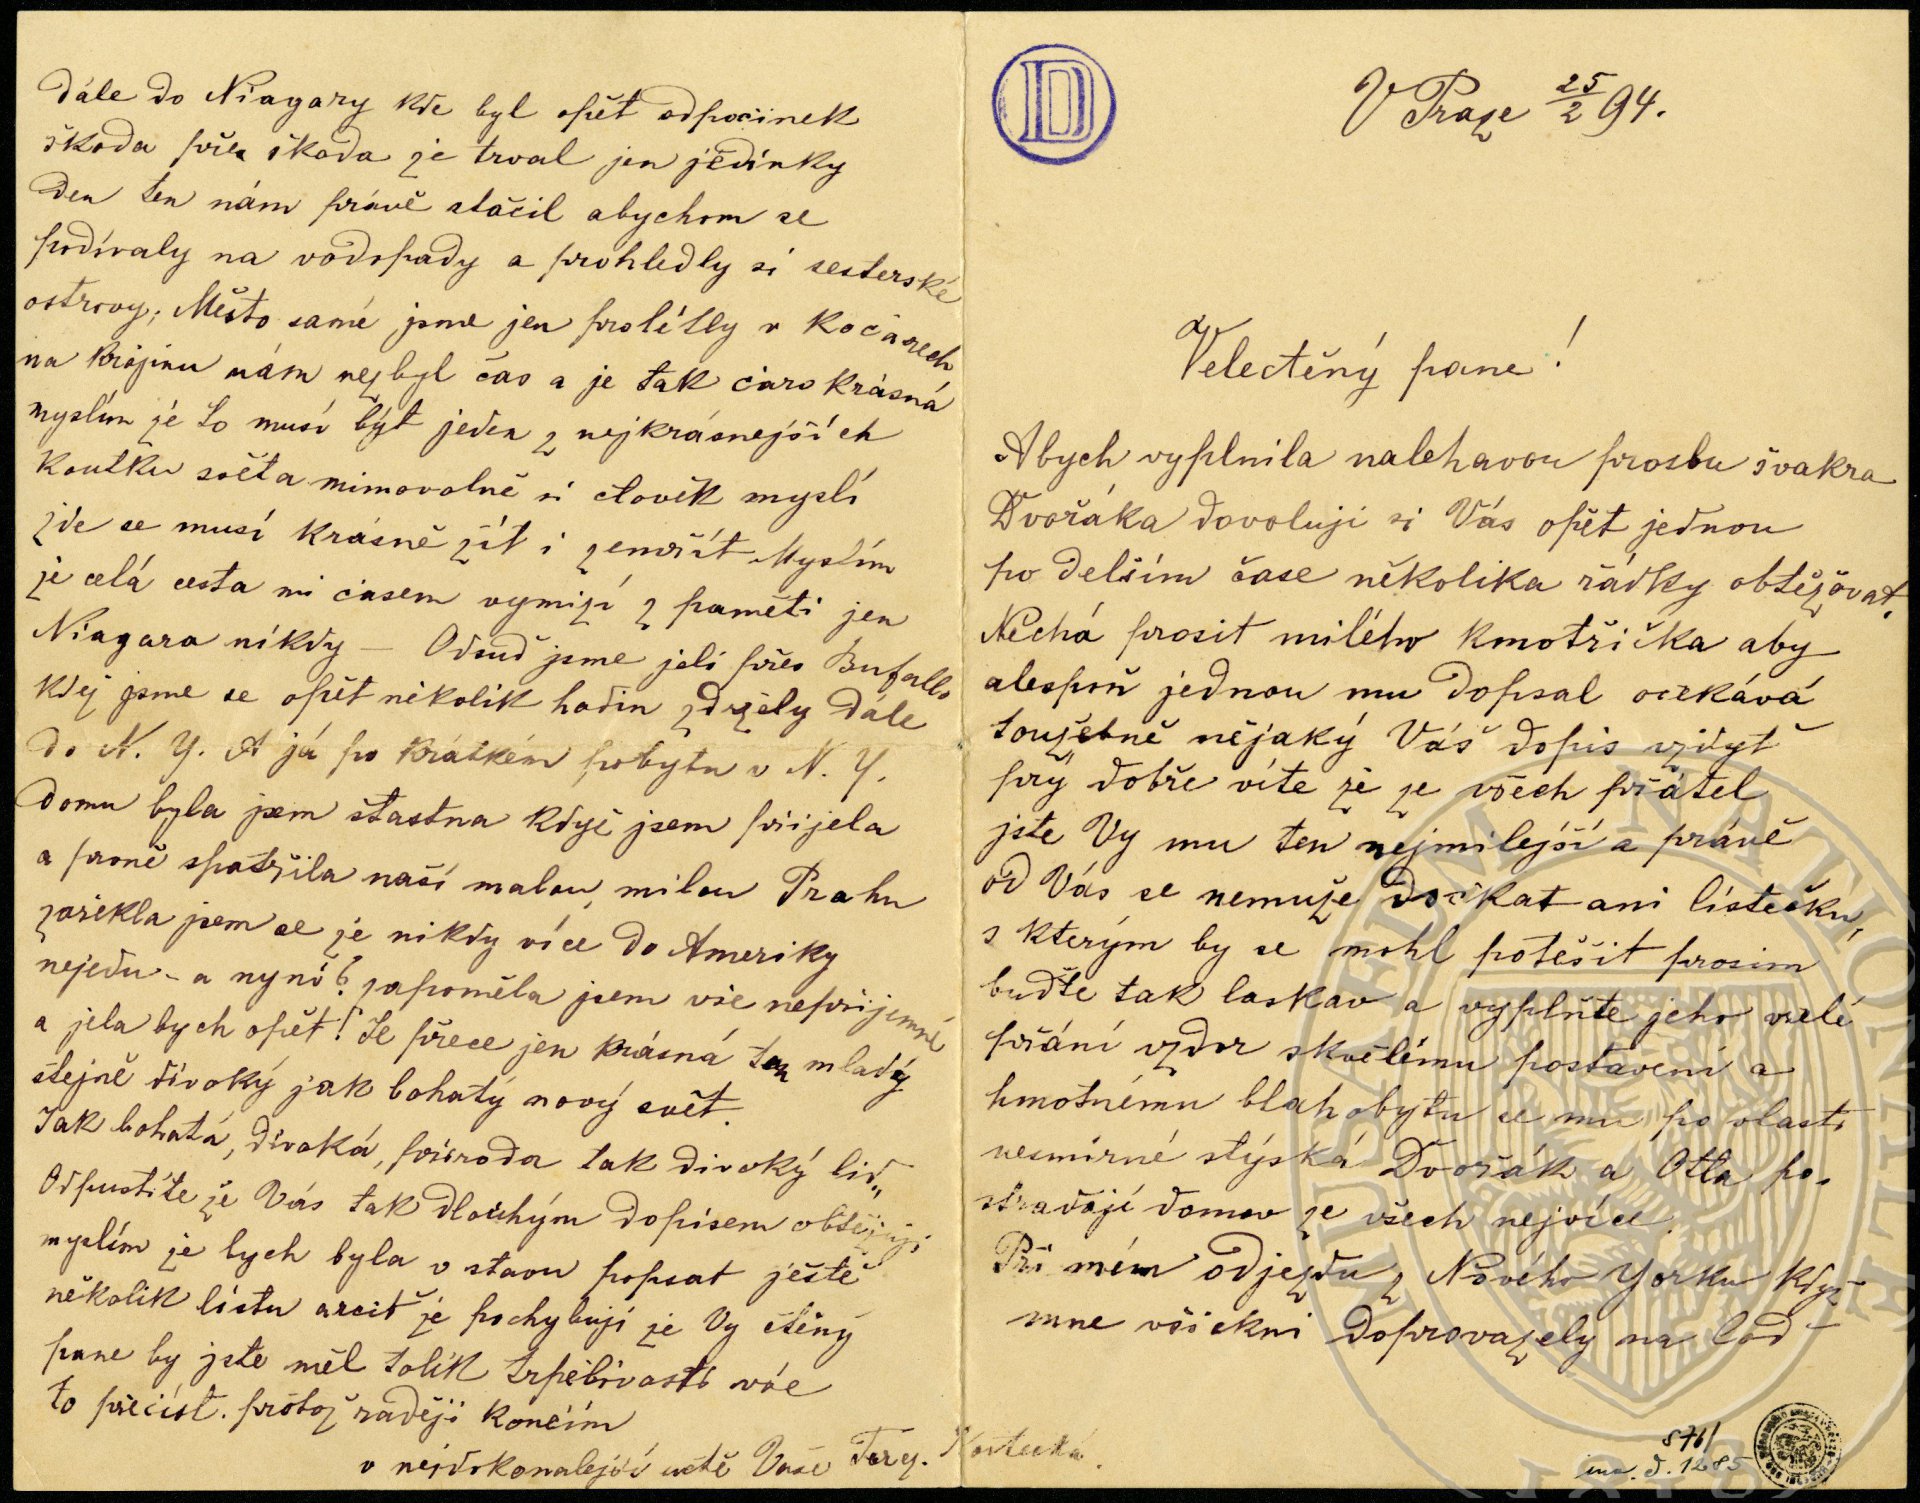 V Praze 25/2 94.
Velectěný pane!
Abych vyplnila nalehavou prosbu švakra
Dvořáka dovoluji si Vás opět jednou
po delším čase několika řádky obtěžovat.
Nechá prosit milého kmotříčka aby
alespoň jednou mu dopsal očekává
toužebně nějaký Váš dopis vždyť
prý dobře víte že ze všech přátel
jste Vy mu ten nejmilejší a právě
od Vás se nemuže dočkat ani lístečku,
s kterým by se mohl potěšit prosim
buďte tak laskav a vyplňte jeho vřelé
přání vzdor skvělému postavení a
hmotnému blahobytu se mu po vlasti
nesmírné stýská Dvořák a Otla po-
stradají domov ze všech nejvíce.
Při mém odjezdu z Nového Yorku když
mne všickni doprovazely na loď
dále do Niagary kde byl opět odpočinek
škoda přes škoda že trval jen jedinky
den ten nám právě stačil abychom se
podívaly na vodopady a prohledly si sesterské
ostrovy; Město samé jsme jen prolétly v kočárech
na krajinu nám nezbyl čas a je tak čaro krásná
myslím že to musí být jeden z nejkrásnejších
koutku světa mimovolně si člověk myslí
zde se musí krásně žít i zemřít Myslím
že celá cesta mi časem vymizí z paměti jen
Niagara nikdy — Odsud jsme jeli přes Bufallo
kdež jsme se opět několik hodin zdržely dále
do N. Y. A já po krátkém pobytu v N. Y.
domu byla jsem štastna když jsem přijela
a prvně spatřila naší malou, milou Prahu
zařekla jsem se že nikdy více do Ameriky
nejedu - a nyní? zapoměla jsem vše nepříjemné
a jela bych opět! Je přece jen krásná ten mladý
stejně divoký jak bohatý nový svět.
Jak bohatá, divoká, příroda tak divoký lid„
Odpustíte že Vás tak dlouhým dopisem obtěžuji
myslím že bych byla v stavu popsat ještě
několik lístu arciť že pochybuji že Vy ctěný
pane by jste měl tolik trpělivosti vše
to přečíst. pročož raději končím
v nejdokonalejší uctě Vaše Terz. Koutecká.
876/
inv. č. 1285
D
MUSAEUM NATIONALE